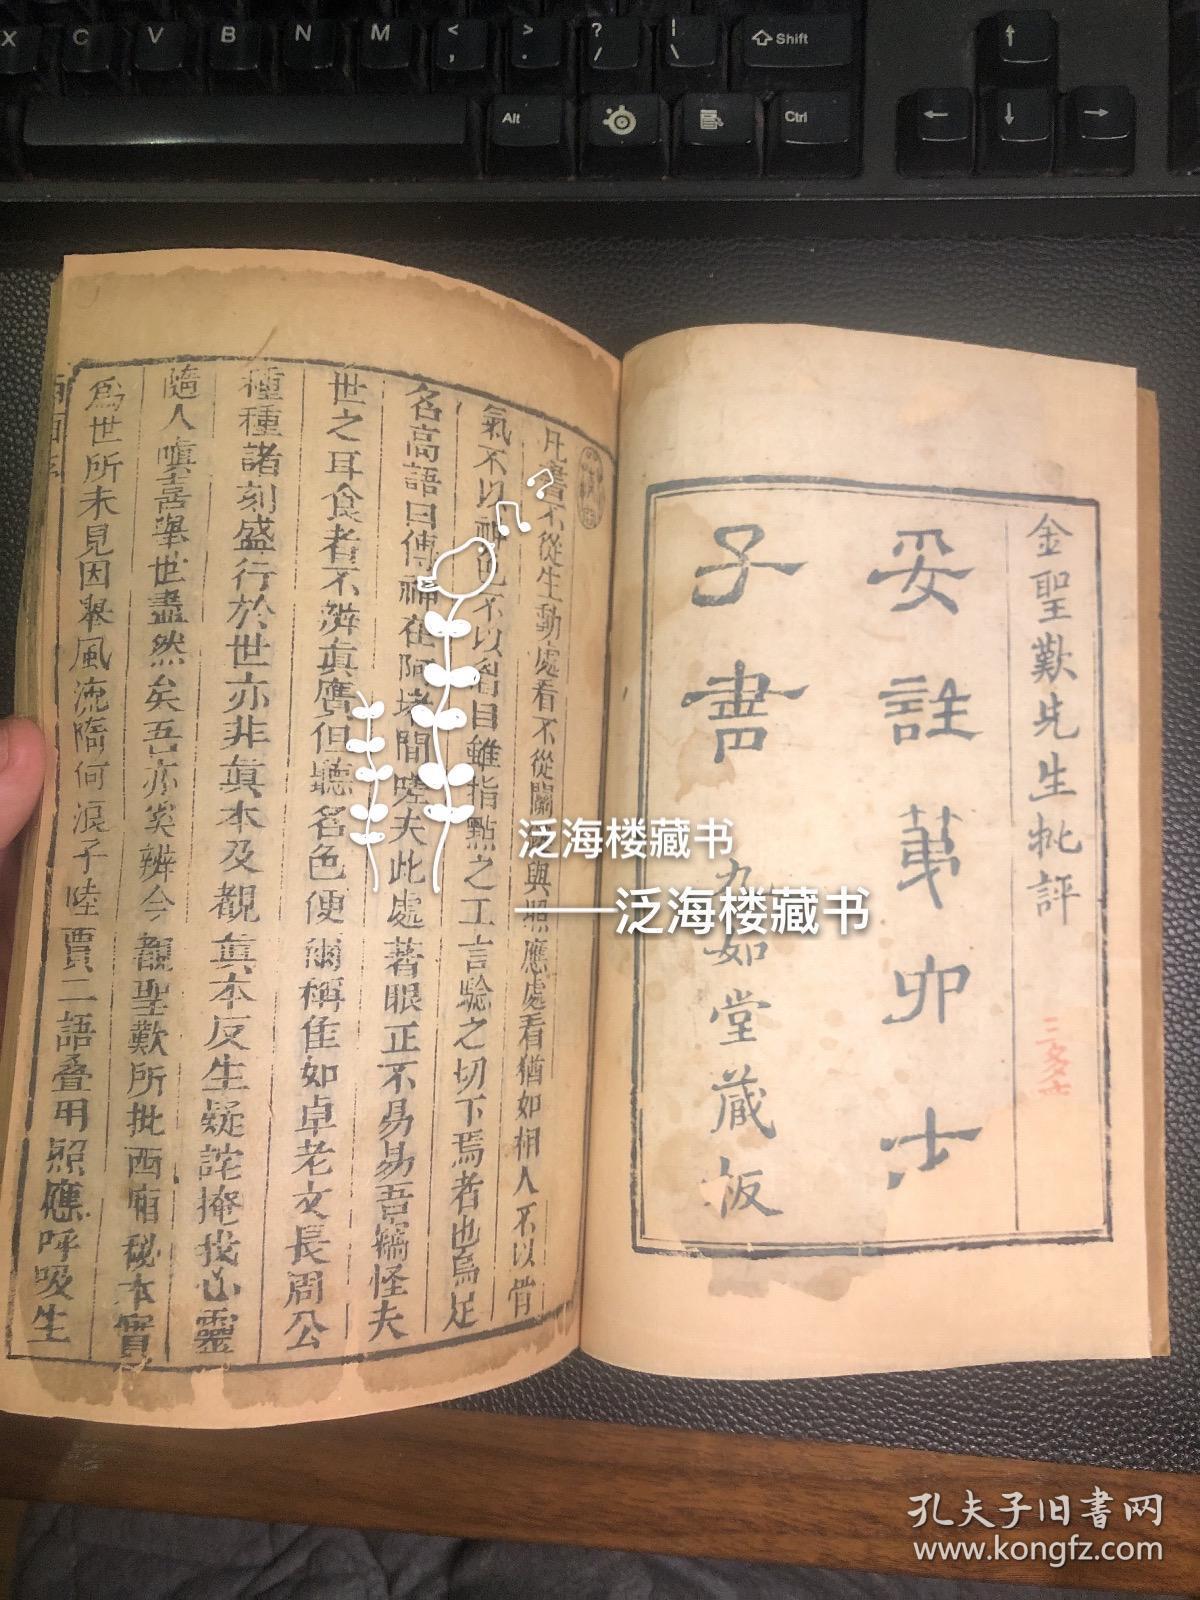 金聖歎先生批評
妥註第六才
子書
九如堂藏板
三多齋
凡書不從生動處看不從關與照應處看猶如相人不以骨
氣不以神色不以眉目雖指點之工言驗之切下焉者也烏足
名高語曰傳神在阿堵間嗟夫此處著眼正不易易吾竊怪夫
世之耳食者不辨真贋但聽名色便爾稱佳如卓老文長周公
種種諸刻盛行於世亦非真本及覩真本反生疑詫掩我心靈
隨人嗔喜舉世盡然矣吾亦奚辨今覩聖歎所批西廂秘本實
為世所未見因舉風流隋何浪子陸賈二語疊用照應呼吸生
泛海楼藏书
——泛海楼藏书
孔夫子旧书网
www.kongfz.com
X C V B N M < , > . ? / | \ Shift
Alt Ctrl